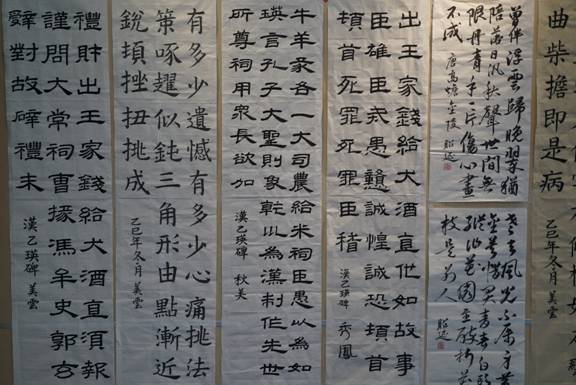 曲
柴擔即是病
乙巳年冬月 美雲
曾伴浮雲歸晚翠猶
陪落日泛秋聲世間無
限丹青手一片傷心畫
不成 唐高蟾金陵 昭远
老去風光不屬身黃
金莫惜買青春白頭
縱作花園主醉折花
枝是別人 昭远
出王家錢給犬酒直他如故事
臣雄臣戒愚戇誠惶誠恐頓首
頓首死罪死罪臣稽 漢乙瑛碑 秀鳳
牛羊豕各一大司農給米祠臣愚以為如
瑛言孔子大聖則象乾以為漢制作先世
所尊祠用眾長欲加 漢乙瑛碑 秋美
有多少遺憾有多少心痛挑法
策啄趯似鈍三角形由點漸近
銳頓挫扭挑成 乙巳年冬月 美雲
禮財出王家錢給犬酒直須報
謹問大常祠曹掾馮牟史郭玄
辤對故辟禮未 漢乙瑛碑 美雲